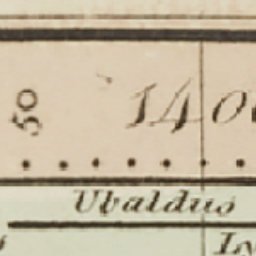 50 1400
Ubaldus
Ly